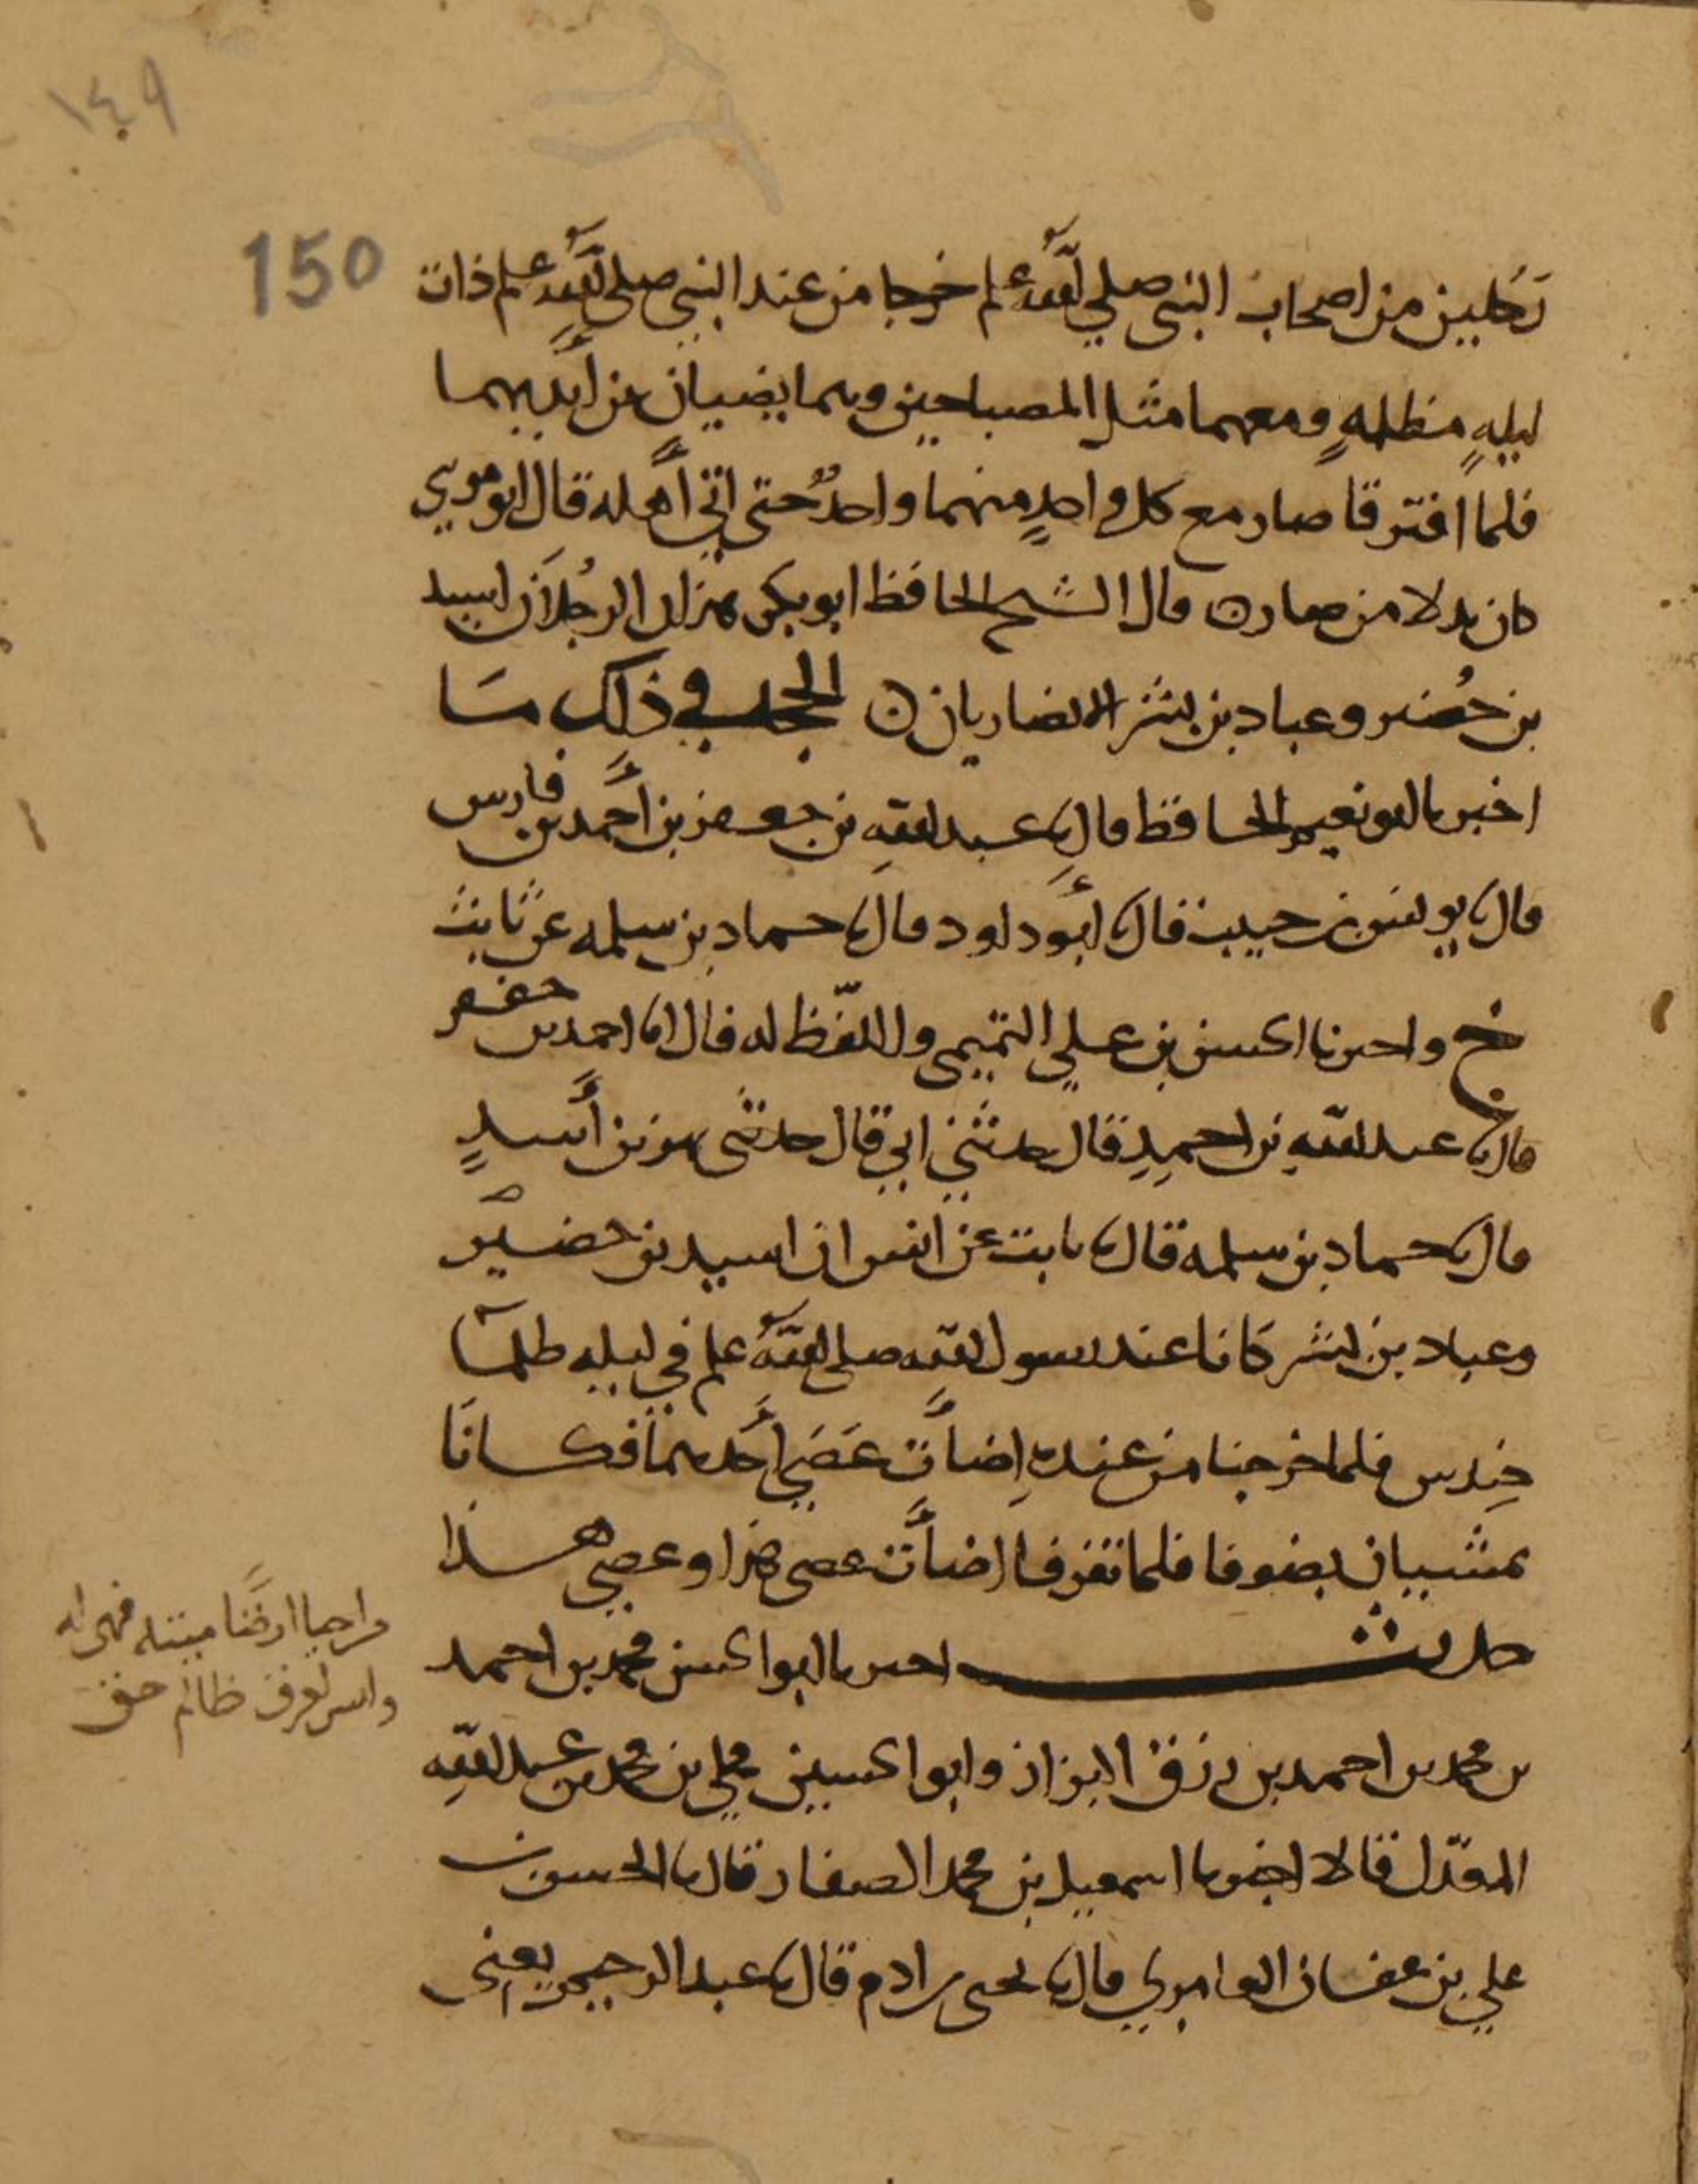 ١٤٩
150
رجلين من اصحاب النبي صلى الله علم خرجا من عند النبي صلى الله علم ذات
ليلةٍ مظلمةٍ ومعهما مثل المصباحين وهما يضيان عن أيديهما
فلما افترقا صار مع كل واحدٍ منهما واحدٌ حتى اتى أهله قال ابو موسى
كان بدلا من صار ن قال الشيخ الحافظ ابو بكر هذان الرجُلاَن اسيد
بن حُضير وعباد بن بشر الانصاريان ن الحجه في ذلك ما
اخبرنا ابو نعيم الحافظ قال نا عبد الله بن جعفر بن أحمد بن فارس
قال نا يونس بن حبيب قال نا أبو داود قال نا حماد بن سلمه عن ثابت
ح واخبرنا الحسن بن علي التميمي واللّفظ له قال انا احمد بن جعفر
قال نا عبد الله بن احمدِ قال حدثني ابي قال حدثنى بهز بن أسدٍ
قال نا حماد بن سلمه قال نا ثابت عن انس ان اسيد بن حضير
وعباد بن بشر كانا عند رسول الله صلى الله علم في ليله ظلمآ
حِندس فلما خرجنا من عنده اِضأت عَصَى أحدهما فكانَا
يمشيان بضوها فلما تفرقا اضأت عصى هذا وعصى هذا
حديث اخبرنا ابو الحسن محمد بن احمد
بن محمد بن احمد بن رزق البزاز وابو الحسين علي بن محمد بن عبد الله
المعدّل قالا اخبرنا اسمعيل بن محمد الصفار قال نا الحسن بن
علي بن عفان العامري قال نا يحيى بن ادم قال نا عبد الرحيم يعني
من احيا ارضًا ميتته فهى له
وليس لعرق ظالم حق